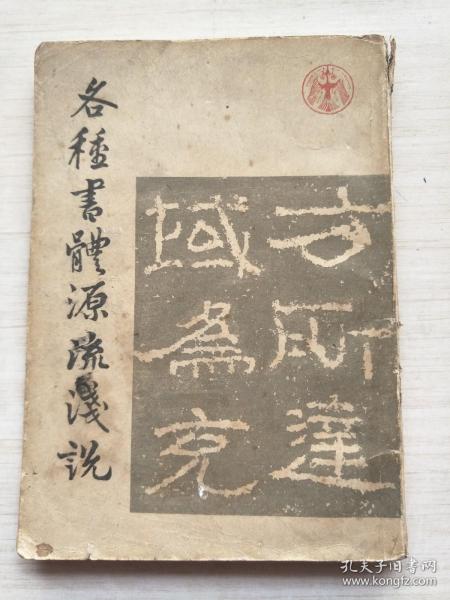 各種書體源流淺說
方所達
域為兗
孔夫子旧书网
www.kongfz.com